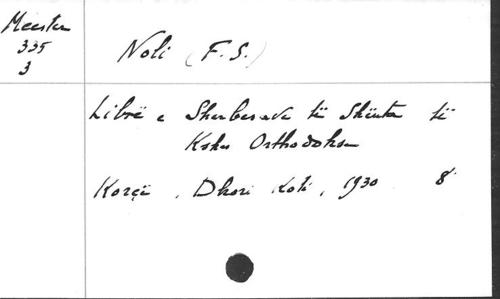 Meester
335
3
Noli (F. S.)
Librë e Sherbesave të Shënta të
Kishes Orthodokse
Korçë, Dhori Koti, 1930 8°